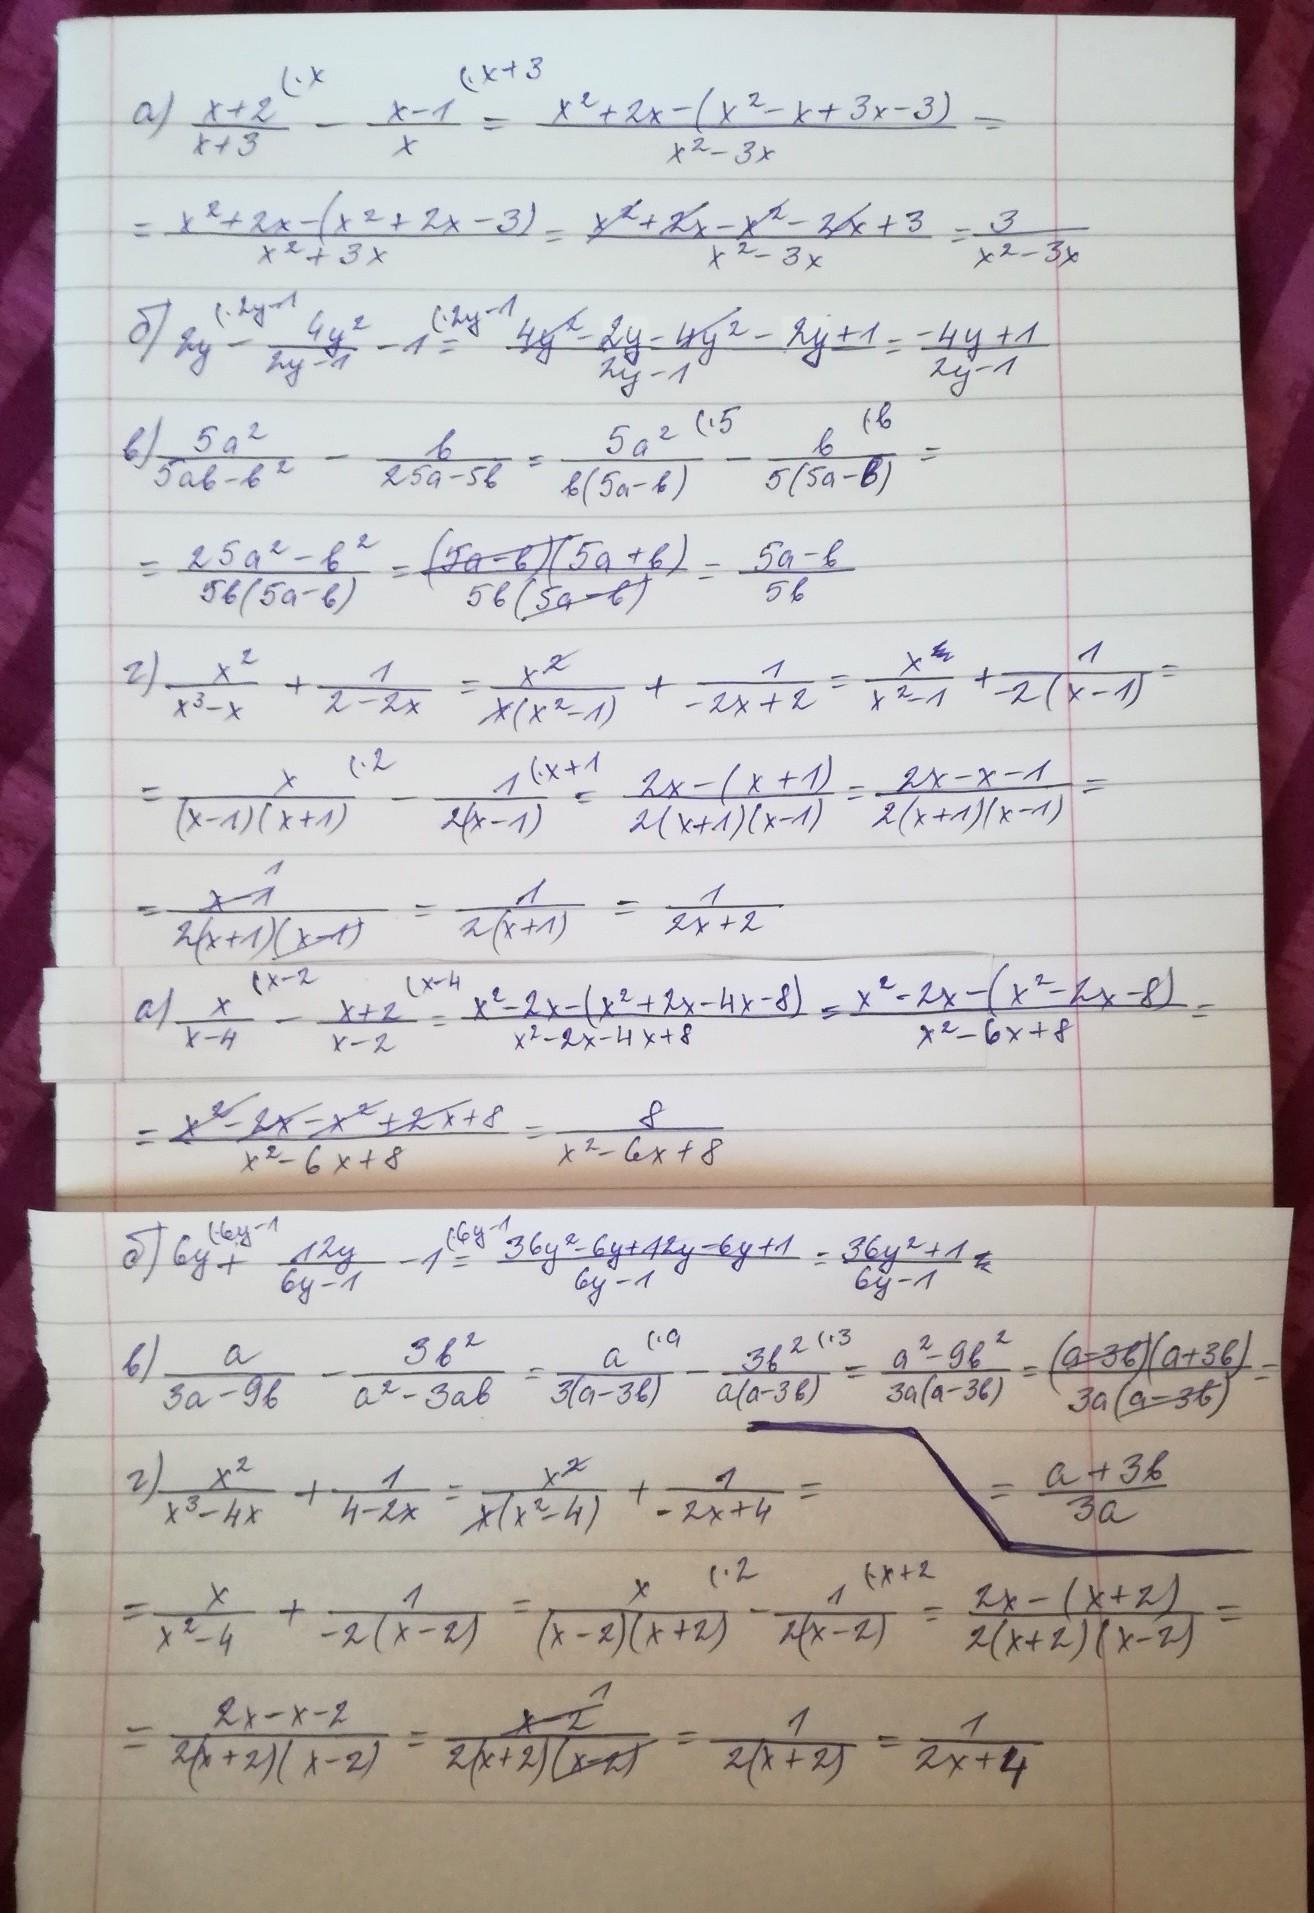 а) (x+2)/(x+3) (·x − (x−1)/x (·x+3 = (x²+2x−(x²−x+3x−3))/(x²−3x) =
= (x²+2x−(x²+2x−3))/(x²+3x) = (x²+2x−x²−2x+3)/(x²−3x) = 3/(x²−3x)
б) 2y (·2y−1 − 4y²/(2y−1) − 1 (·2y−1 = (4y²−2y−4y²−2y+1)/(2y−1) = (−4y+1)/(2y−1)
в) 5a²/(5ab−b²) − b/(25a−5b) = 5a²/(b(5a−b)) (·5 − b/(5(5a−b)) (·b =
= (25a²−b²)/(5b(5a−b)) = ((5a−b)(5a+b))/(5b(5a−b)) = (5a−b)/(5b)
г) x²/(x³−x) + 1/(2−2x) = x²/(x(x²−1)) + 1/(−2x+2) = x/(x²−1) + 1/(−2(x−1)) =
= x/((x−1)(x+1)) (·2 − 1/(2(x−1)) (·x+1 = (2x−(x+1))/(2(x+1)(x−1)) = (2x−x−1)/(2(x+1)(x−1)) =
= (x−1)/(2(x+1)(x−1)) 1 = 1/(2(x+1)) = 1/(2x+2)
а) x/(x−4) (x−2 − (x+2)/(x−2) (x−4 = (x²−2x−(x²+2x−4x−8))/(x²−2x−4x+8) = (x²−2x−(x²−2x−8))/(x²−6x+8) =
= (x²−2x−x²+2x+8)/(x²−6x+8) = 8/(x²−6x+8)
б) 6y (·6y−1 + 12y/(6y−1) − 1 (·6y−1 = (36y²−6y+12y−6y+1)/(6y−1) = (36y²+1)/(6y−1)
в) a/(3a−9b) − 3b²/(a²−3ab) = a/(3(a−3b)) (·a − 3b²/(a(a−3b)) (·3 = (a²−9b²)/(3a(a−3b)) = ((a−3b)(a+3b))/(3a(a−3b)) =
= (a+3b)/(3a)
г) x²/(x³−4x) + 1/(4−2x) = x²/(x(x²−4)) + 1/(−2x+4) =
= x/(x²−4) + 1/(−2(x−2)) = x/((x−2)(x+2)) (·2 − 1/(2(x−2)) (·x+2 = (2x−(x+2))/(2(x+2)(x−2)) =
= (2x−x−2)/(2(x+2)(x−2)) = (x−2)/(2(x+2)(x−2)) 1 = 1/(2(x+2)) = 1/(2x+4)